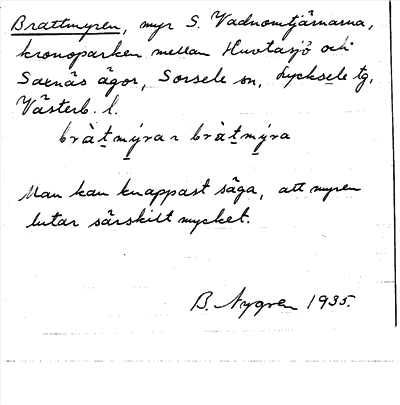 Brattmyren, myr S. Vadnomtjärnarna,
kronoparken mellan Huvtasjö och
Saxnäs ägor, Sorsele sn, Lycksele tg,
Västerb. l.
bràt̲mýra ~ bràt̲mýra
Man kan knappast säga, att myren
lutar särskilt mycket.
B. Nygren 1935.